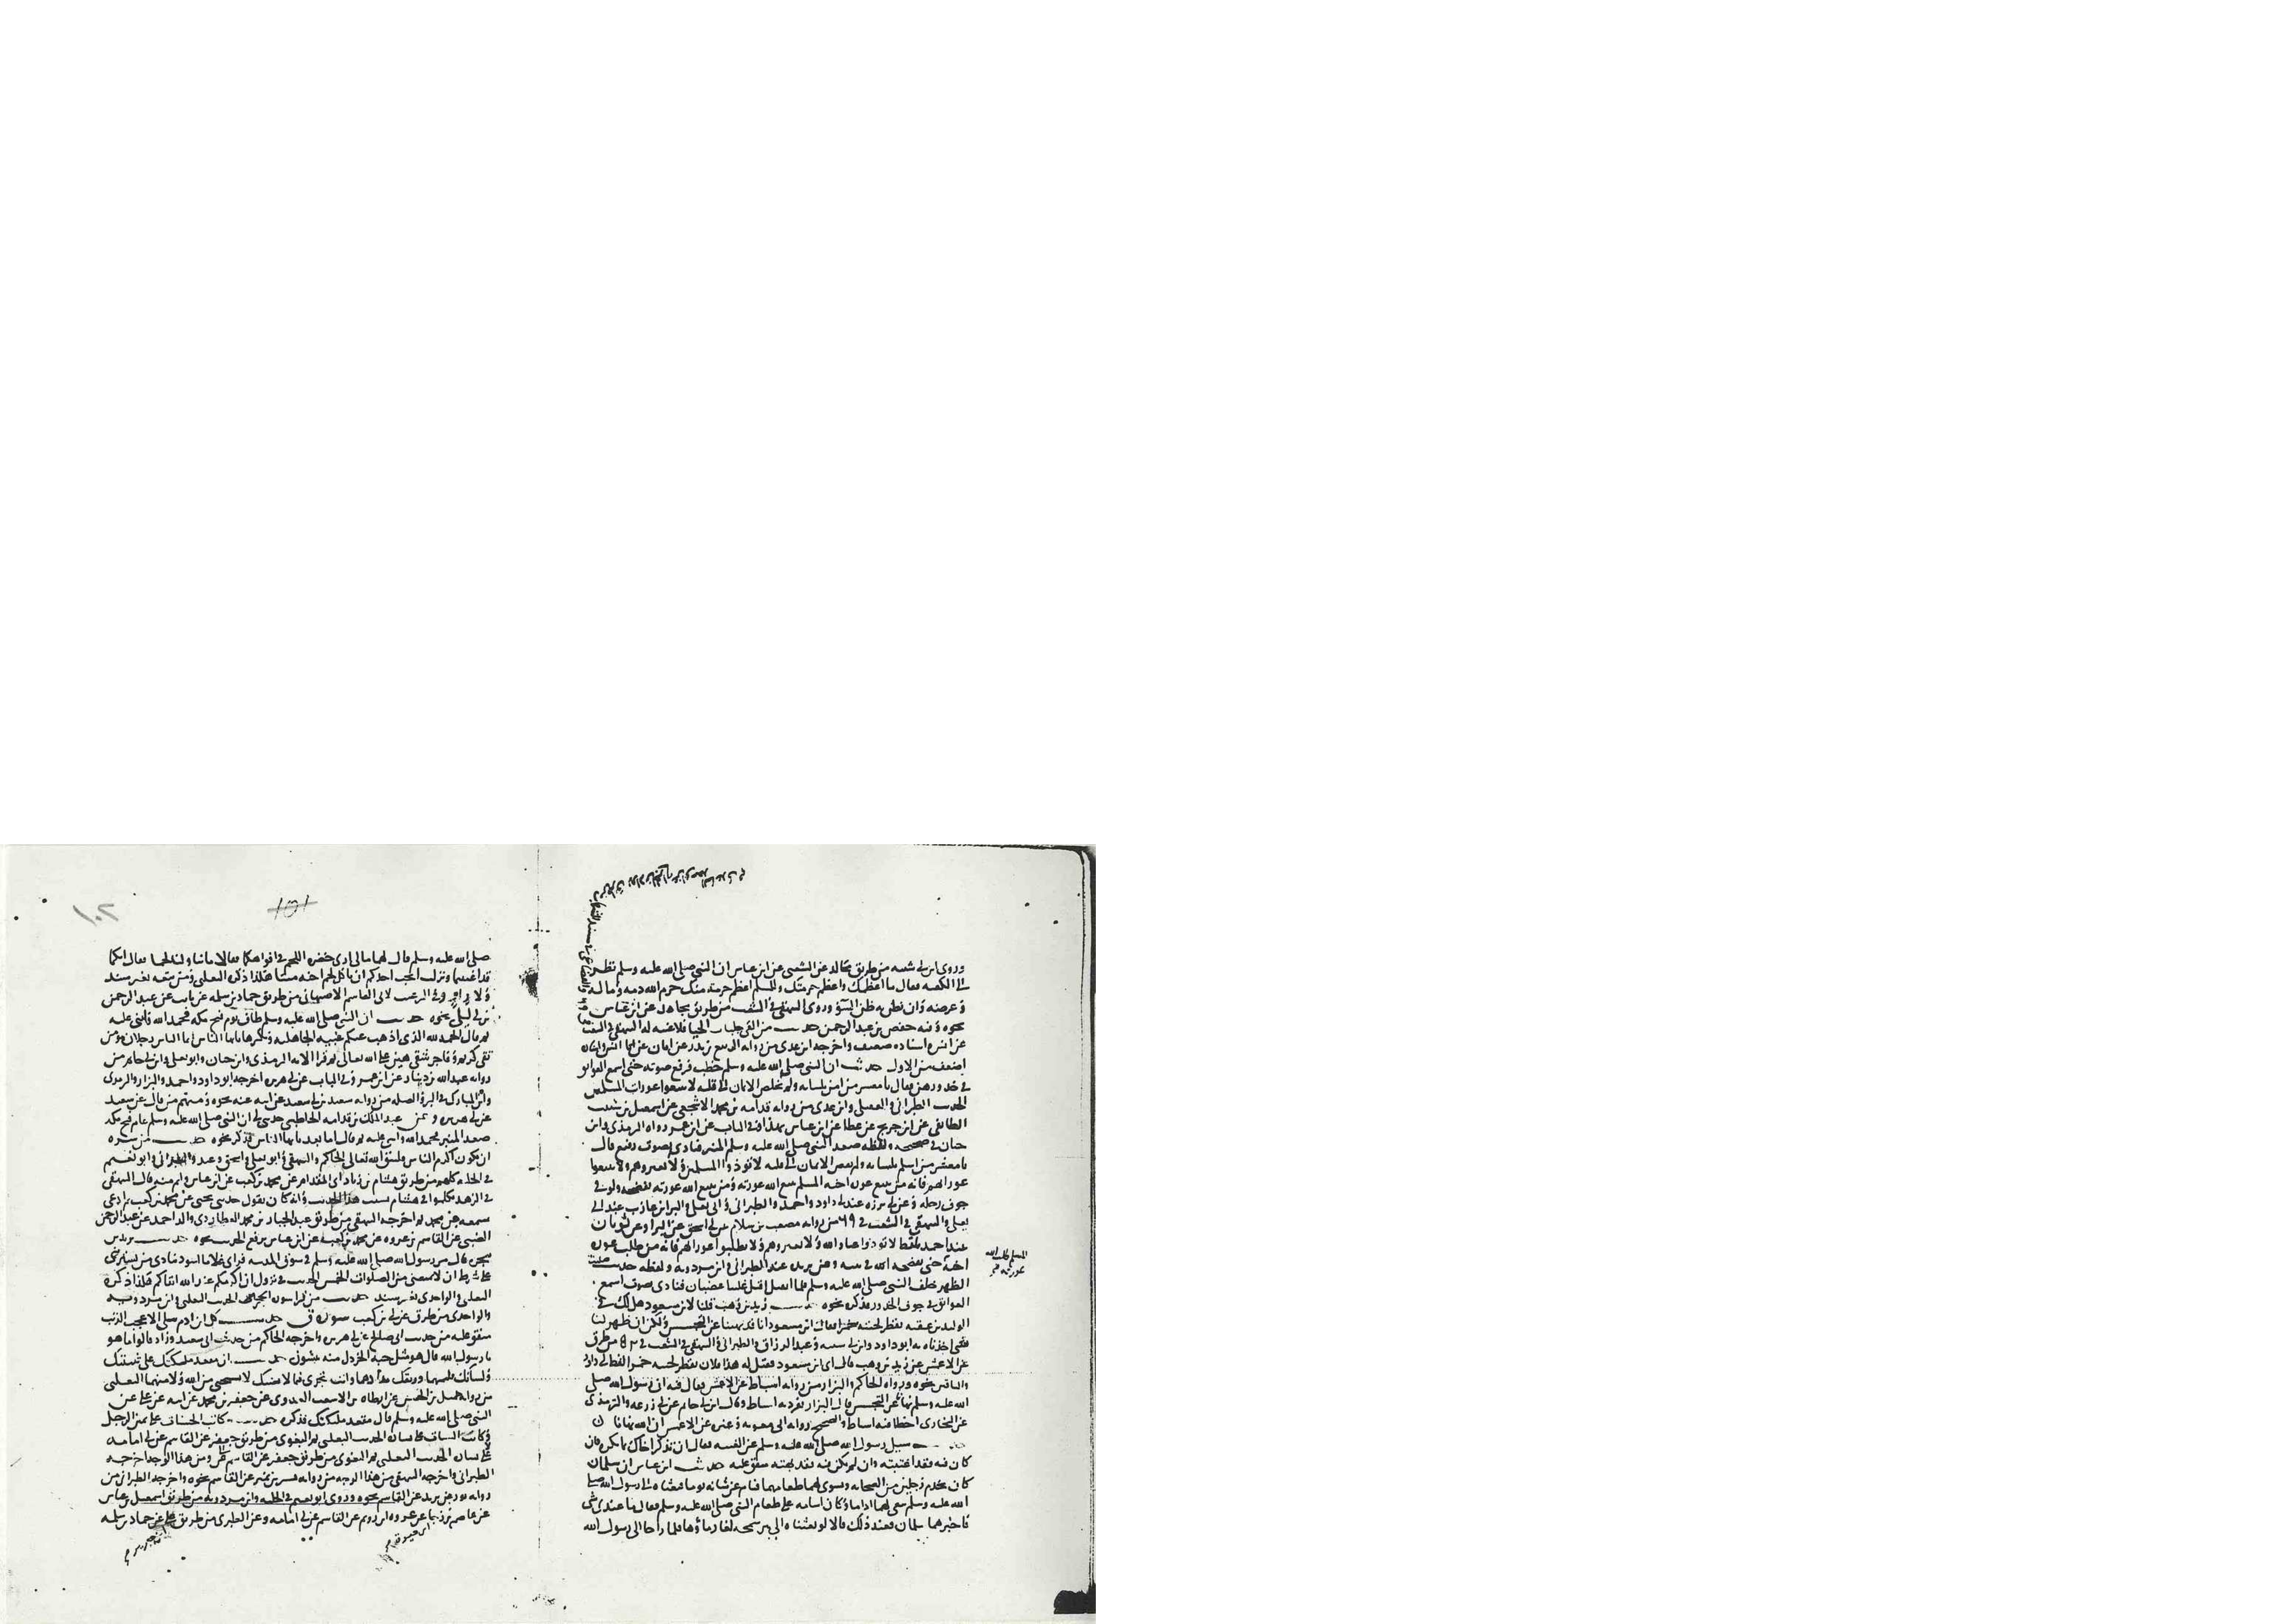 وروى ابن ابي شيبه من طريق مجالد عن الشعبي عن ابن عباس ان النبي صلى الله عليه وسلم نظر
الى الكعبه فقال ما اعظمك واعظم حرمتك والمسلم اعظم حرمة منك حرم الله دمه وماله
وعرضه وان نظن به ظن السوء وروى البيهقي في الشعب من طريق مجاهد عن ابن عباس
نحوه وفيه حفص بن عبد الرحمن حديث من القى جلباب الحيا فلا غيبه له البيهقي في الشعب
عن انس واسناده ضعيف واخرجه ابن عدي من روايه الربيع بن بدر عن ابان عن انس واسناده
اضعف من الاول حديث ان النبي صلى الله عليه وسلم خطب فرفع صوته حتى اسمع العواتق
في خدورهن فقال يا معشر من امن بلسانه ولم يخلص الايمان الى قلبه لا تتبعوا عورات المسلمين
الحديث الطبراني والعقيلي وابن عدي من روايه قدامه بن محمد الاشجعي عن اسمعيل بن شيب
الطائفي عن ابن جريج عن عطا عن ابن عباس بهذا وفي الباب عن ابن عمر رواه الترمذي وابن
حبان في صحيحه ولفظه صعد النبي صلى الله عليه وسلم المنبر فنادى بصوت رفيع قال
يا معشر من اسلم بلسانه ولم يفض الايمان الى قلبه لا تؤذوا المسلمين ولا تعيروهم ولا تتبعوا
عوراتهم فانه من يتبع عورة اخيه المسلم يتبع الله عورته ومن يتبع الله عورته يفضحه ولو في
جوف رحله وعن ابي برزه عند ابي داود واحمد والطبراني وابي يعلى والبرا بن عازب عند ابي
يعلى والبيهقي في الشعب في ٦٩ من روايه مصعب بن سلام عن ابي اسحق عن البراء وعن ثوبان
عند احمد بلفظ لا تؤذوا عباد الله ولا تعيروهم ولا تطلبوا عوراتهم فانه من طلب عورة
اخيه حتى يفضحه الله في بيته وعن بريده عند الطبراني وابن مردويه ولفظه صليت
الظهر خلف النبي صلى الله عليه وسلم فلما انفتل اقبل علينا غضبان فنادى بصوت اسمع
العواتق في جوف الخدور فذكره نحوه حديث زيد بن وهب قلنا لابن مسعود هل لك في
الوليد بن عقبه تقطر لحيته خمرا فقال ابن مسعود انا قد نهينا عن التجسس ولكن ان ظهر لنا
شي اخذناه به ابو داود وابن ابي شيبه وعبد الرزاق والطبراني والبيهقي في الشعب من طرق
عن الاعمش عن زيد بن وهب قال اتي ابن مسعود فقيل له هذا فلان تقطر لحيته خمرا لفظ ابي داود
والباقين نحوه ورواه الحاكم والبزار من روايه اسباط عن الاعمش فقال فيه ان رسول الله صلى
الله عليه وسلم نهانا عن التجسس قال البزار تفرد به اسباط وقال ابن ابي حاتم عن ابي زرعه والترمذي
عن البخاري اخطا فيه اسباط والصحيح روايه ابي معويه وغيره عن الاعمش ان الله نهانا
حديث سيل رسول الله صلى الله عليه وسلم عن الغيبه فقال ان تذكر اخاك بما يكره فان
كان فيه فقد اغتبته وان لم يكن فيه فقد بهته متفق عليه حديث ابن عباس ان سلمان
كان يخدم رجلين من الصحابه ويسوي لهما طعامهما فنام عن شانه يوما فبعثاه الى رسول الله صلى
الله عليه وسلم يبغي لهما اداما وكان اسامه على طعام النبي صلى الله عليه وسلم فقال ما عندي شي
فاخبرهما سلمان فعند ذلك قالا لو بعثناه الى بير سميحه لغار ماؤها فلما راحا الى رسول الله
١٠٢
101
صلى الله عليه وسلم قال لهما مالي ارى خضره اللحم في افواهكما فقالا ما تناولنا لحما فقال انكما
قد اغتبتما ونزلت ايحب احدكم ان ياكل لحم اخيه ميتا هكذا ذكره الثعلبي ومن تبعه بغير سند
ولا راو وفي الترغيب لابي القاسم الاصبهاني من طريق حماد بن سلمه عن ثابت عن عبد الرحمن
بن ابي ليلى نحوه حديث ان النبي صلى الله عليه وسلم طاف يوم فتح مكه فحمد الله واثنى عليه
ثم قال الحمد لله الذي اذهب عنكم عبيه الجاهليه وتكبرها يا ايها الناس انما الناس رجلان مومن
تقي كريم وفاجر شقي هين على الله تعالى ثم قرا الايه الترمذي وابن حبان وابو يعلى وابن ابي حاتم من
روايه عبد الله بن دينار عن ابن عمر وفي الباب عن ابي هريره اخرجه ابو داود واحمد والبزار والترمذي
وابن المبارك في البر والصله من روايه سعيد بن ابي سعيد عن ابيه عنه نحوه ومنهم من قال عن سعيد
عن ابي هريره وعن عبد الملك بن قدامه الحاطبي حدثني ابي ان النبي صلى الله عليه وسلم عام فتح مكه
صعد المنبر فحمد الله واثنى عليه ثم قال اما بعد يا ايها الناس فذكر نحوه حديث من سره
ان يكون اكرم الناس فليتق الله تعالى الحاكم والبيهقي وابو يعلى واسحق وعبد والطبراني وابو نعيم
في الحليه كلهم من طريق هشام بن زياد ابي المقدام عن محمد بن كعب عن ابن عباس واتم منه قال البيهقي
في الزهد تكلموا في هشام بسبب هذا الحديث وانه كان يقول حدثني يحيى عن محمد بن كعب ثم ادعى
سمعه من محمد ثم اخرجه البيهقي من طريق عبد الجبار بن محمد العطاردي والد احمد عن عبد الرحمن
الضبي عن القاسم بن عروه عن محمد بن كعب عن ابن عباس يرفع الحديث نحوه حديث يزيد بن
شجره قال مر رسول الله صلى الله عليه وسلم في سوق المدينه فراى غلاما اسود ينادي من يشتريني
على شرط ان لا يمنعني من الصلوات الخمس الحديث في نزول ان اكرمكم عند الله اتقاكم هكذا ذكره
الثعلبي والواحدي بغير سند حديث من قرا سوره الحجرات الحديث الثعلبي وابن مردويه
والواحدي من طرق عن ابي بن كعب سورة ق حديث كل ابن ادم يبلى الا عجب الذنب
متفق عليه من حديث ابي صالح عن ابي هريره واخرجه الحاكم من حديث ابي سعيد وزاد قالوا ما هو
يا رسول الله قال هو مثل حبه الخردل منه ينشون حديث ان مقعد ملكيك على ثنيتك
ولسانك قلمهما وريقك مدادهما وانت تجري فيما لا يعنيك لا تستحي من الله ولا منهما الثعلبي
من روايه جميل بن الحسن عن ارطاه بن الاشعث العدوي عن جعفر بن محمد عن ابيه عن علي عن
النبي صلى الله عليه وسلم قال مقعد ملكيك فذكره حديث كاتب الحسنات على يمين الرجل
وكاتب السيات على يسار الحديث الثعلبي ثم البغوي من طريق جعفر عن القاسم عن ابي امامه
على يسار الحديث الثعلبي ثم البغوي من طريق جعفر عن القاسم ومن هذا الوجه اخرجه
الطبراني واخرجه البيهقي من هذا الوجه من روايه بشر بن نمير عن القاسم نحوه واخرجه الطبراني من
روايه ثور بن يزيد عن القاسم نحوه وروى ابو نعيم في الحليه وابن مردويه من طريق اسمعيل بن عياش
عن عاصم بن رجا عن عروه ابن رويم عن القاسم عن ابي امامه وعن الطبري من طريق علي عن حماد بن سلمه